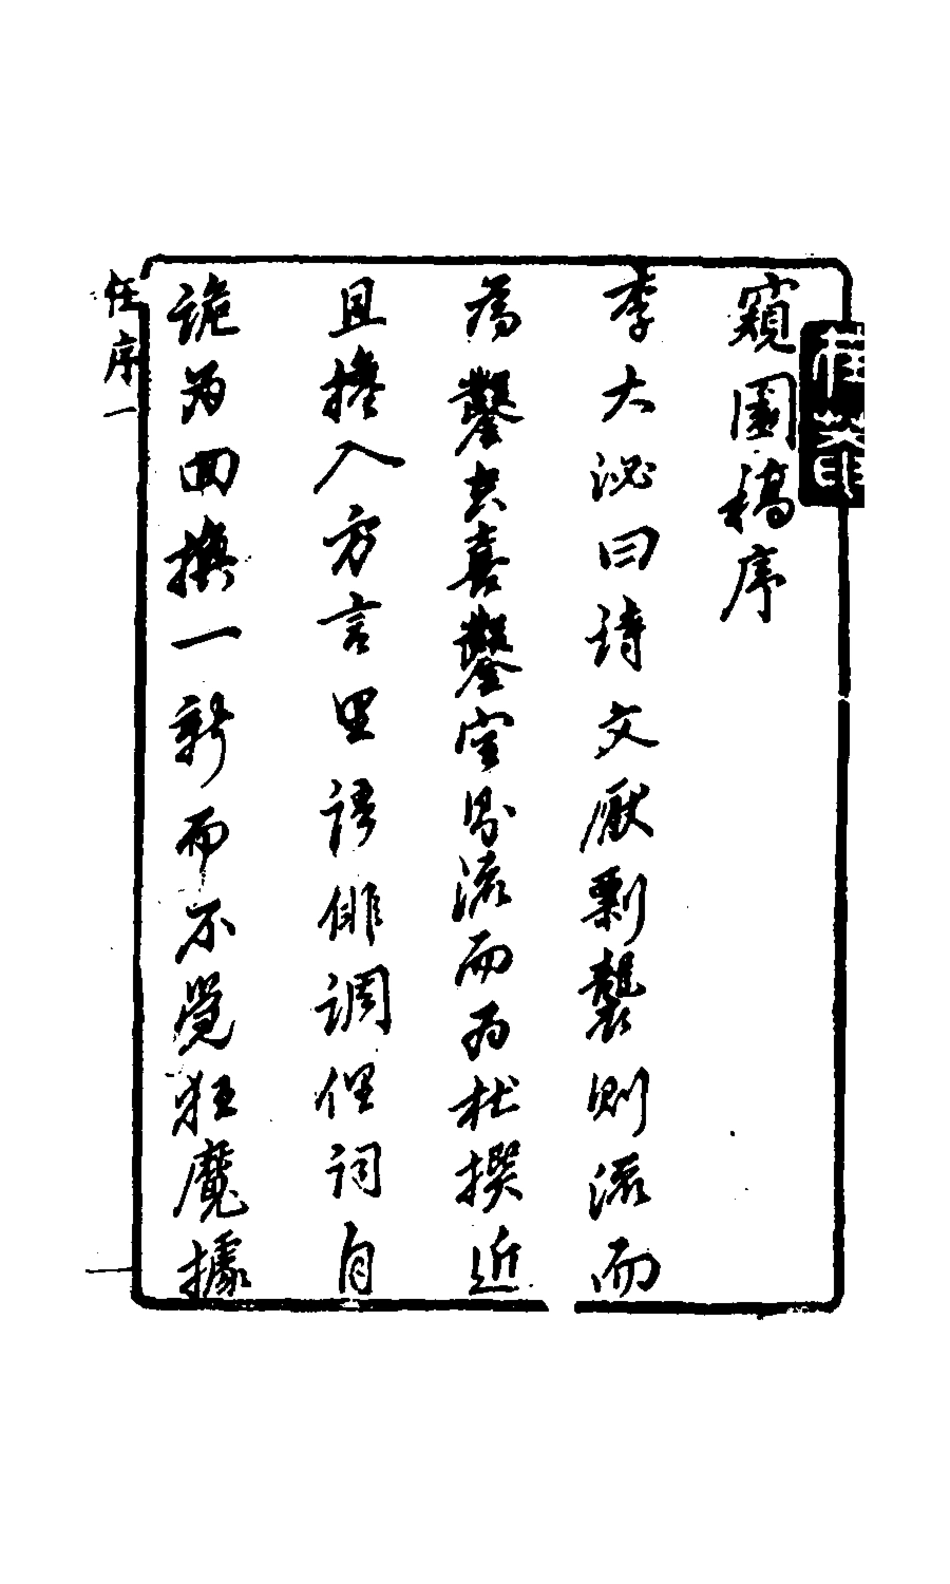 窺園稿序
李大泌曰詩文厭剽襲則流而
為鑿去喜鑿空則流而為杜撰近
且攙入方言里語俳調俚詞自
詭為回撫一新而不覺狂魔據
任序一